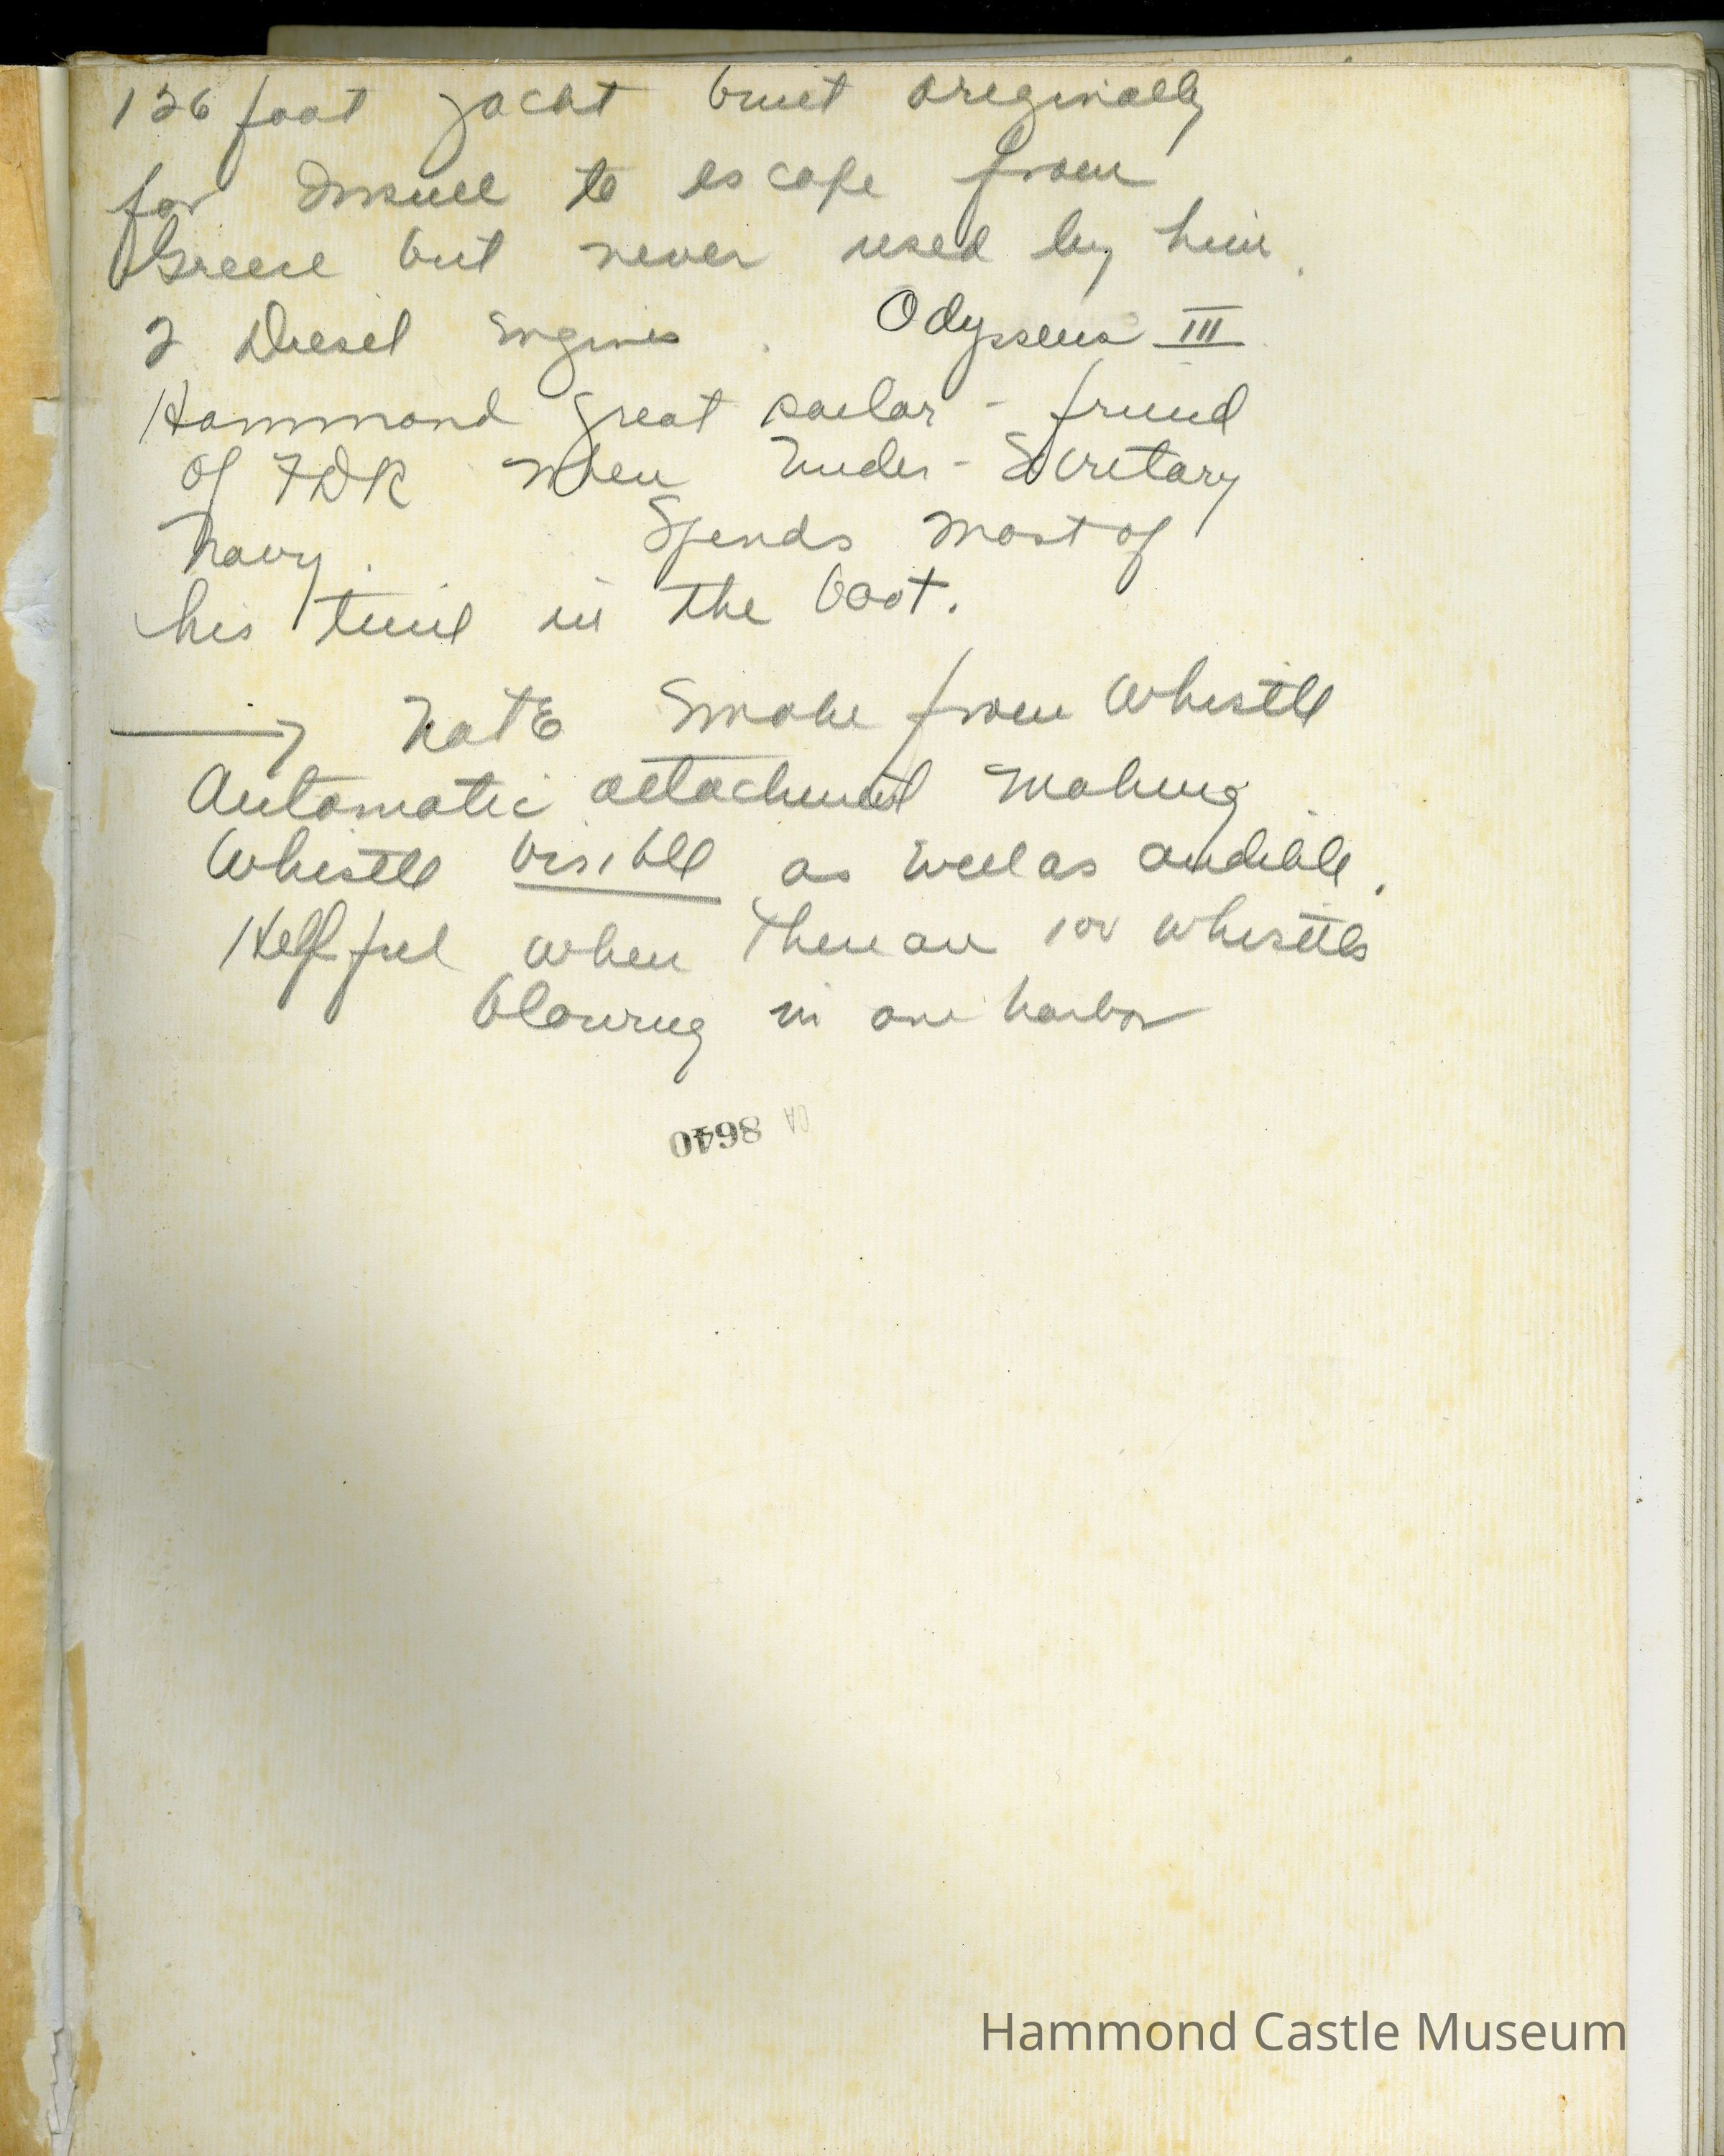 126 foot yacht built originally
for Insull to escape from
Greece but never used by him.
2 Diesel Engines. Odysseus III
Hammond great sailor - friend
of FDR when Under-Secretary
Navy. Spends most of
his time in the boat.
→ Note Smoke from Whistle
Automatic attachment making
Whistle visible as well as audible.
Helpful when there are whistles
blowing in one harbor
8640
Hammond Castle Museum